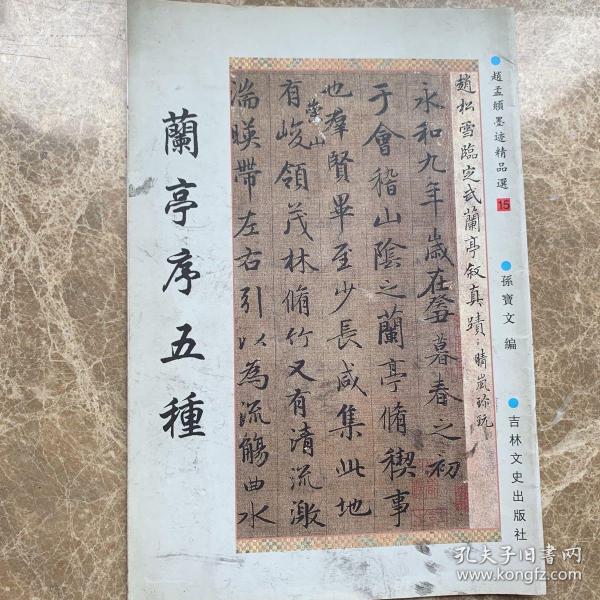 趙孟頫墨迹精品選 15
孫寶文 編
吉林文史出版社
趙松雪臨定武蘭亭叙真蹟 晴嵐珍玩
永和九年歲在癸丑暮春之初
于會稽山陰之蘭亭脩稧事
也羣賢畢至少長咸集此地
有崇山峻領茂林脩竹又有清流激
湍暎帶左右引以為流觴曲水
蘭亭序五種
孔夫子旧书网
www.kongfz.com